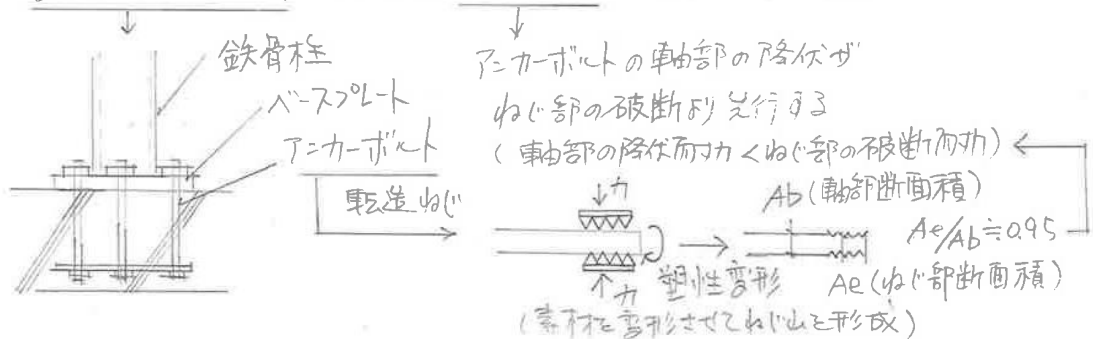 鉄骨柱
ベースプレート
アンカーボルト
アンカーボルトの軸部の降伏が
ねじ部の破断より先行する
(軸部の降伏耐力<ねじ部の破断耐力)
転造ねじ
力
力
塑性変形
(素材を変形させてねじ山を形成)
Ab(軸部断面積)
Ae/Ab≒0.95
Ae(ねじ部断面積)